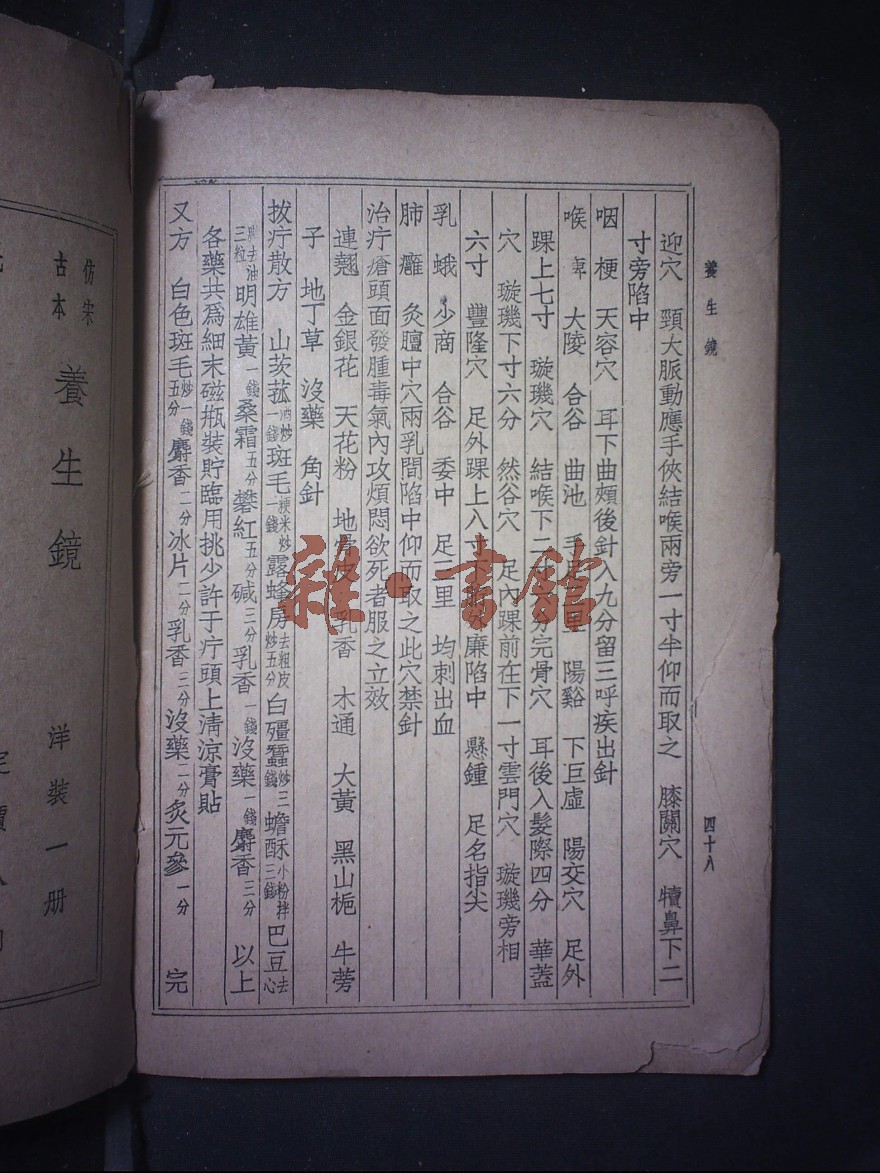 養生鏡
四十八
迎穴 頸大脈動應手俠結喉兩旁一寸半仰而取之 膝關穴 犢鼻下二
寸旁陷中
咽梗 天容穴 耳下曲頰後針入九分留三呼疾出針
喉 大陵 合谷 曲池 手 里 陽谿 下巨虛 陽交穴 足外
踝上七寸 璇璣穴 結喉下二 分完骨穴 耳後入髮際四分 華蓋
穴 璇璣下寸六分 然谷穴 足內踝前在下一寸雲門穴 璇璣旁相
六寸 豐隆穴 足外踝上八寸下 廉陷中 懸鍾 足名指尖
乳蛾 少商 合谷 委中 足三里 均刺出血
肺癰 灸膻中穴兩乳間陷中仰而取之此穴禁針
治疔瘡頭面發腫毒氣內攻煩悶欲死者服之立效
連翹 金銀花 天花粉 地骨皮 乳香 木通 大黃 黑山梔 牛蒡
子 地丁草 沒藥 角針
拔疔散方 山茨菰 一錢 斑毛 梗米炒一錢 露蜂房 去粗皮炒五分 白殭蠶 炒三錢 蟾酥 小粉拌三錢 巴豆 去心
去油三粒 明雄黃 一錢 桑霜 五分 礬紅 五分 碱 三分 乳香 一錢 沒藥 一錢 麝香 三分 以上
各藥共為細末磁瓶裝貯臨用挑少許于疔頭上清涼膏貼
又方 白色斑毛 炒一錢五分 麝香 二分 冰片 二分 乳香 三分 沒藥 二分 炙元參 一分 完
仿宋
古本
養生鏡
洋裝一册